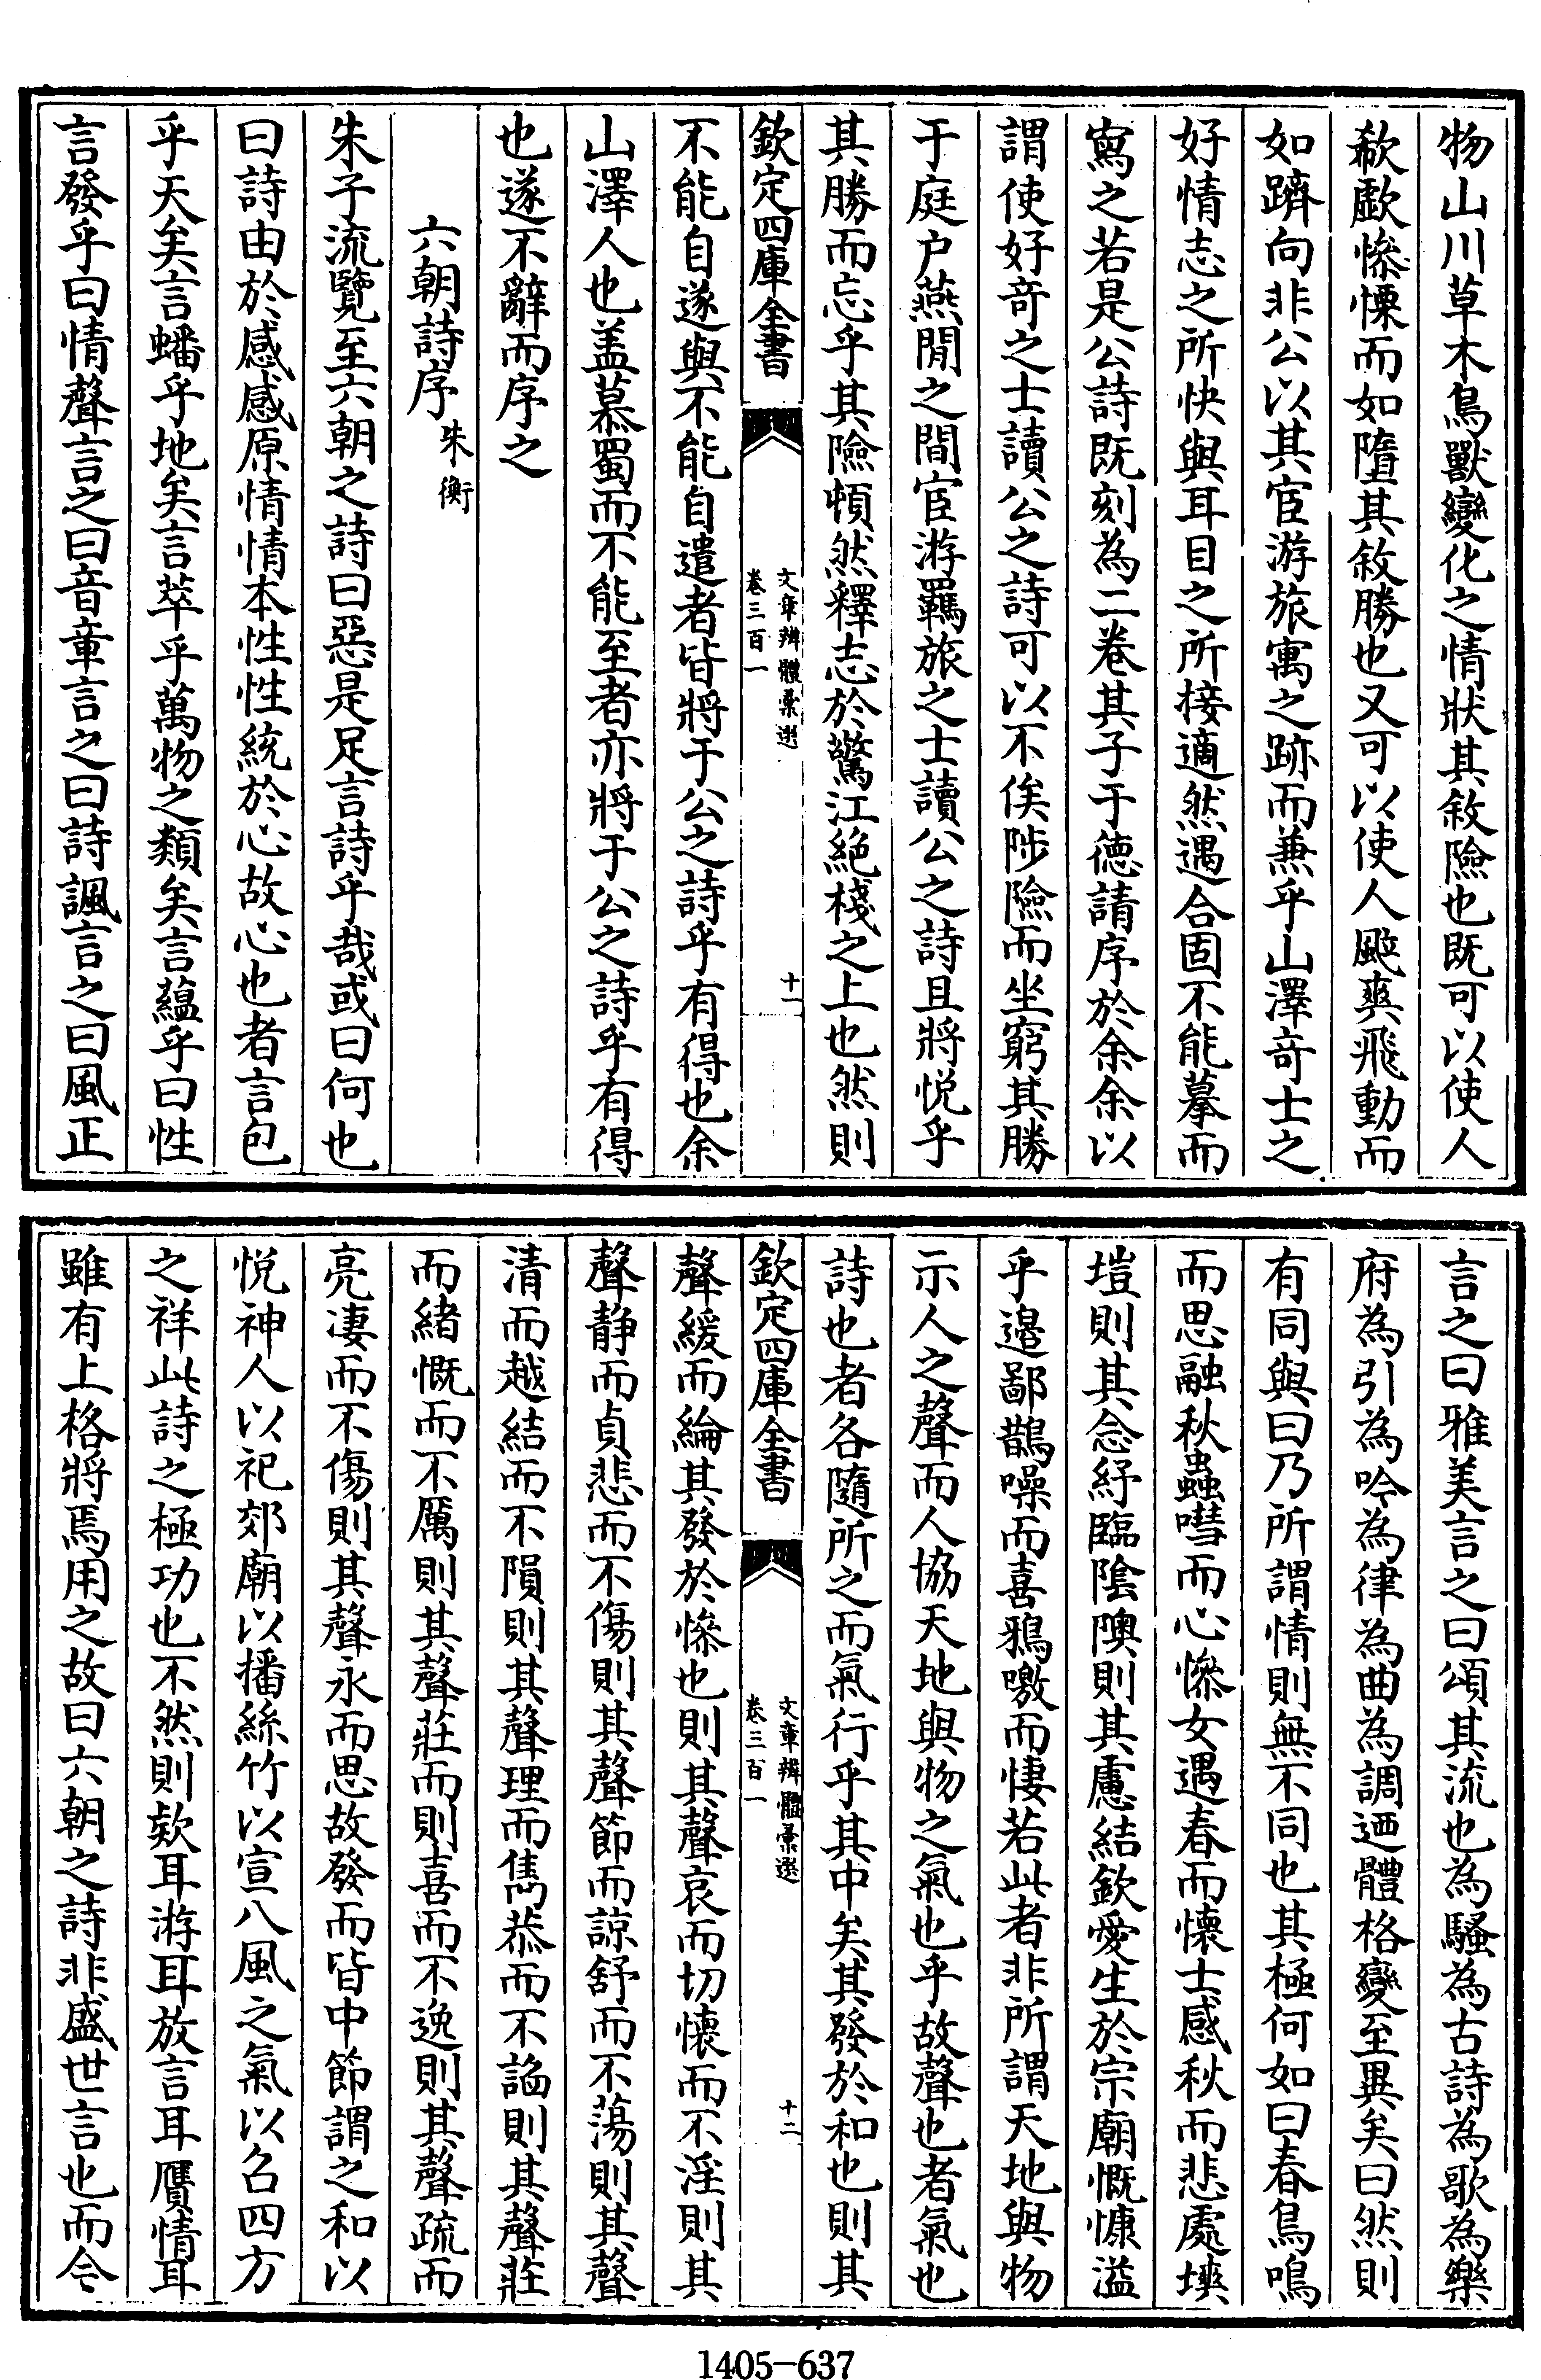 物山川草木鳥獸變化之情狀其敘險也既可以使人
欷歔慘慄而如墮其敘勝也又可以使人颰爽飛動而
如躋向非公以其宦游旅寓之跡而兼乎山澤竒士之
好情志之所快與耳目之所接適然遇合固不能摹而
寫之若是公詩既刻為二卷其子于德請序於余余以
謂使好竒之士讀公之詩可以不俟陟險而坐窮其勝
于庭户燕閒之間宦游羈旅之士讀公之詩且將悦乎
其勝而忘乎其險頓然釋志於驚江絶棧之上也然則
欽定四庫全書
文章辨體彙選
卷三百一
十一
不能自遂與不能自遣者皆將于公之詩乎有得也余
山澤人也盖慕蜀而不能至者亦將于公之詩乎有得
也遂不辭而序之
六朝詩序 朱衡
朱子流覽至六朝之詩曰惡是足言詩乎哉或曰何也
曰詩由於感感原情情本性性統於心故心也者言包
乎天矣言蟠乎地矣言萃乎萬物之類矣言蘊乎曰性
言發乎曰情聲言之曰音章言之曰詩諷言之曰風正
言之曰雅美言之曰頌其流也為騷為古詩為歌為樂
府為引為吟為律為曲為調迺體格變至異矣曰然則
有同與曰乃所謂情則無不同也其極何如曰春鳥鳴
而思融秋蟲嘒而心慘女遇春而懷士感秋而悲處塽
塏則其念紓臨隂隩則其慮結欽愛生於宗廟慨慷溢
乎邉鄙鵲噪而喜鴉噭而悽若此者非所謂天地與物
示人之聲而人協天地與物之氣也乎故聲也者氣也
詩也者各隨所之而氣行乎其中矣其發於和也則其
欽定四庫全書
文章辨體彙選
卷三百一
十二
聲緩而綸其發於慘也則其聲哀而切懷而不淫則其
聲静而貞悲而不傷則其聲節而諒舒而不蕩則其聲
清而越結而不隕則其聲理而雋恭而不謟則其聲莊
而緒慨而不厲則其聲莊而則喜而不逸則其聲疏而
亮凄而不傷則其聲永而思故發而皆中節謂之和以
悦神人以祀郊廟以播絲竹以宣八風之氣以召四方
之祥此詩之極功也不然則欵耳游耳放言耳贋情耳
雖有上格將焉用之故曰六朝之詩非盛世言也而今
1405-637